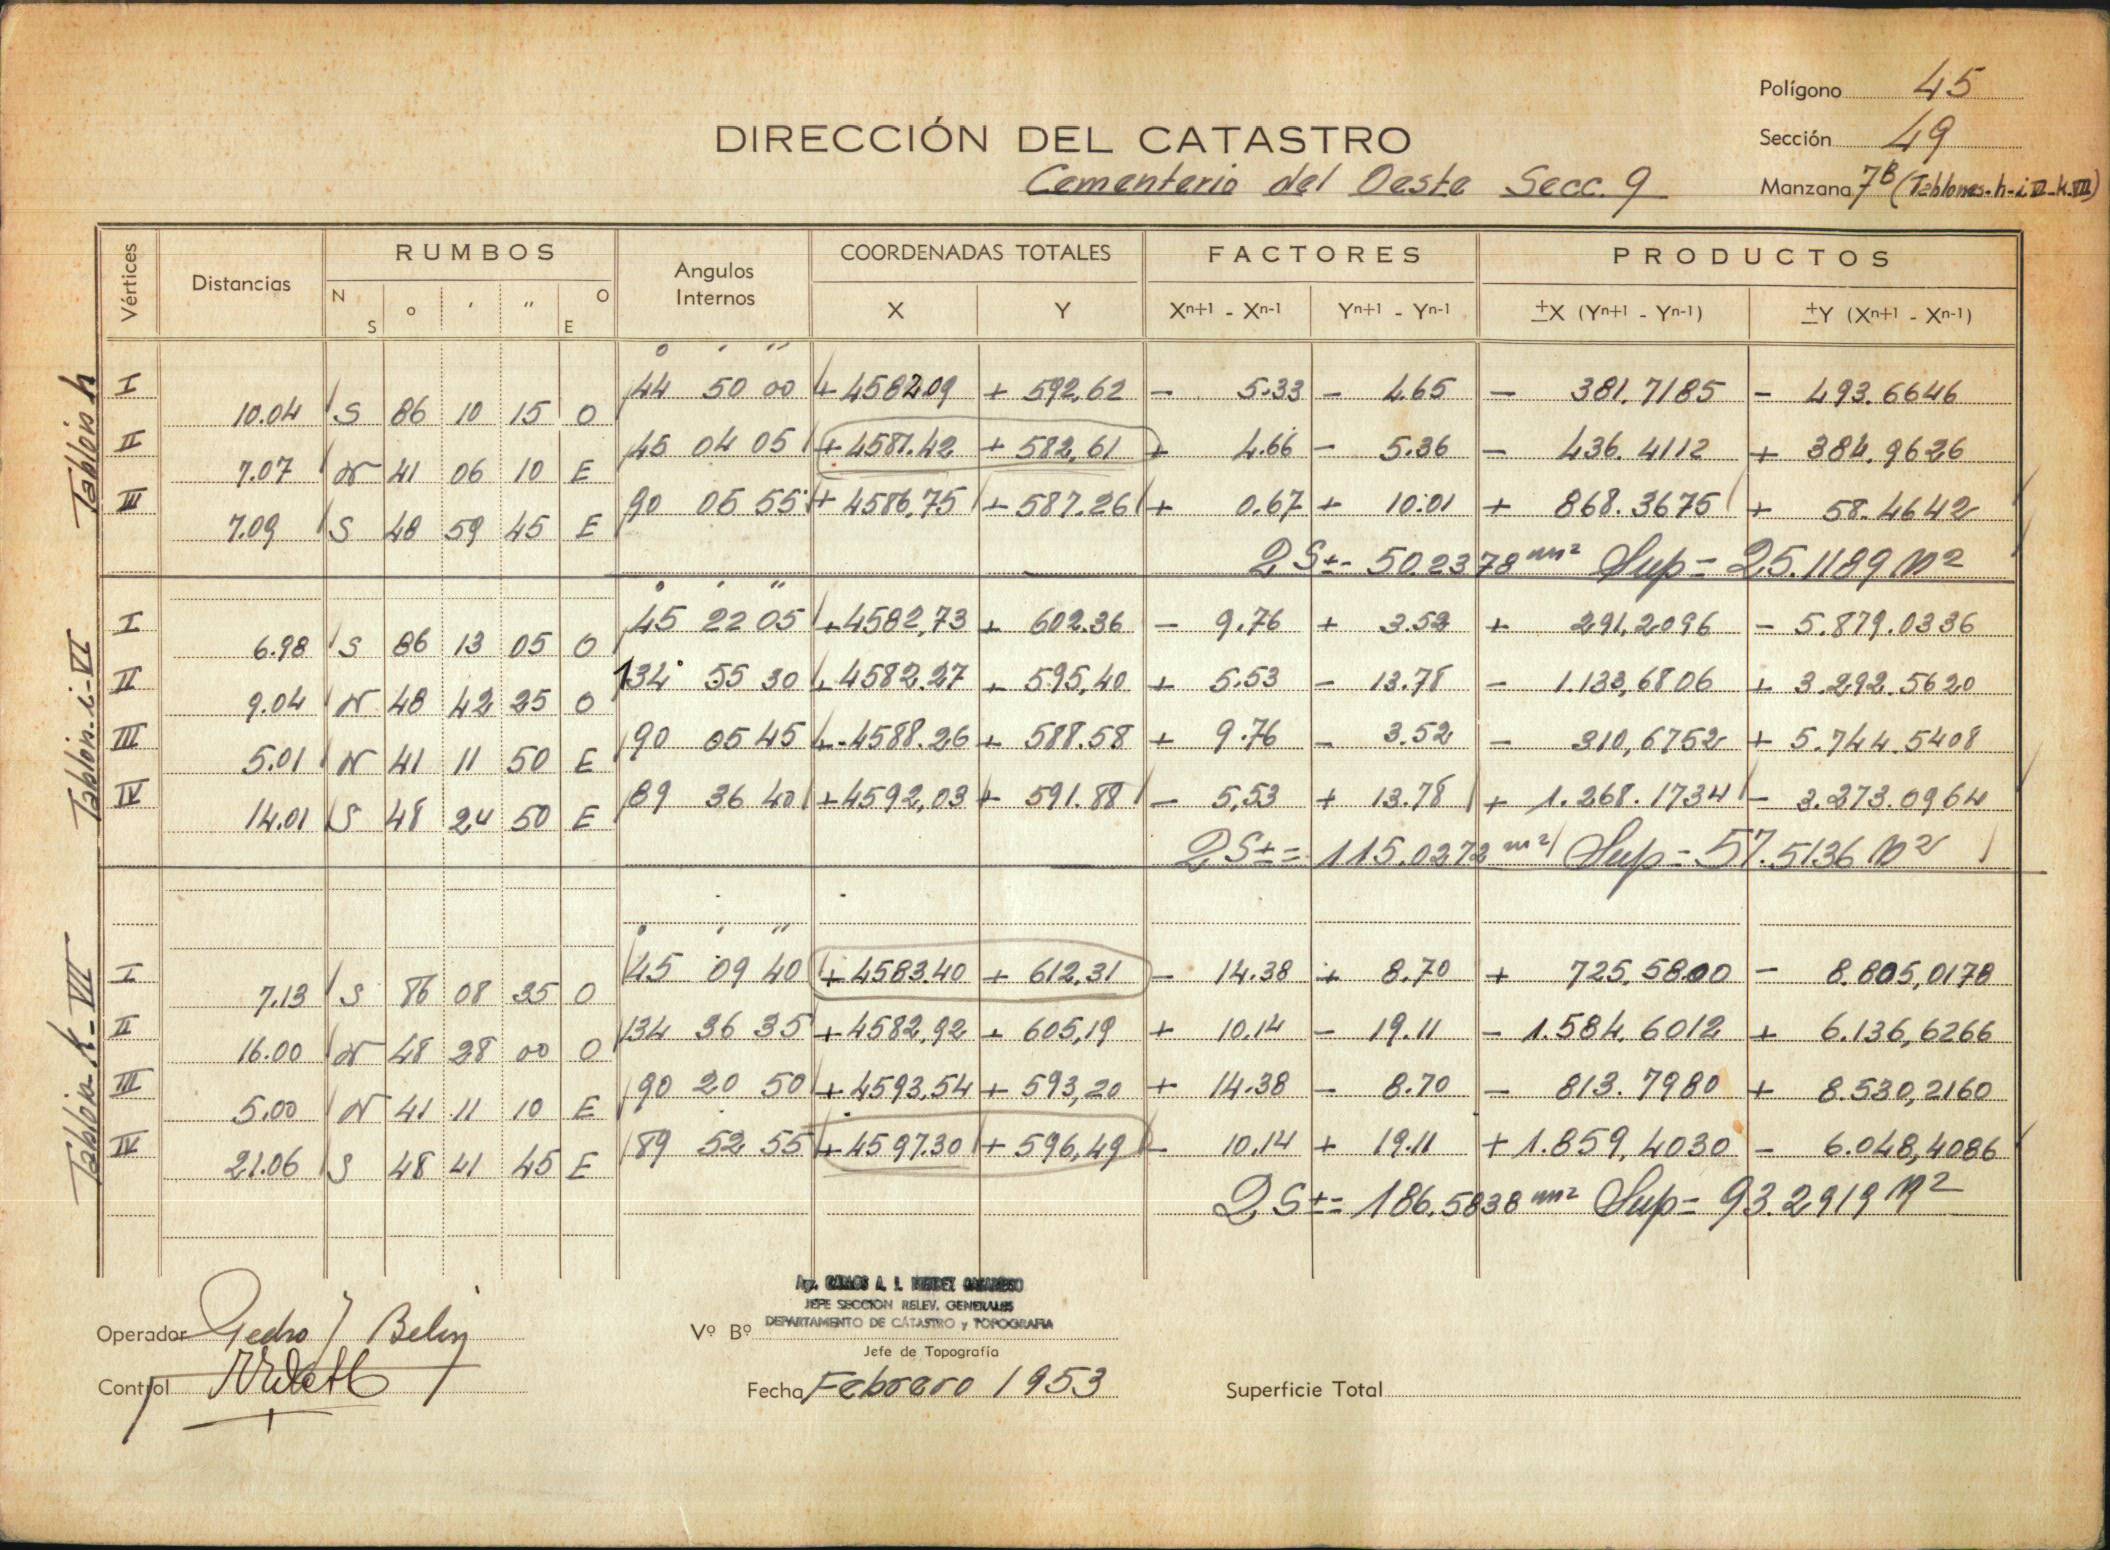 Polígono 45
DIRECCIÓN DEL CATASTRO
Sección 49
Cementerio del Oeste Secc. 9
Manzana 7B (Tablones-h-i.VI-k.VII)
Vértices Distancias RUMBOS Angulos Internos COORDENADAS TOTALES FACTORES PRODUCTOS
N S ° ' " O E X Y Xn+1 - Xn-1 Yn+1 - Yn-1 ±X (Yn+1 - Yn-1) ±Y (Xn+1 - Xn-1)
Tablón h
° ' "
I 44 50 00 + 4582.09 + 592,62 - 5.33 - 4.65 - 381.7185 - 493.6646
10.04 S 86 10 15 O
II 45 04 05 + 4581.42 + 582,61 + 4.66 - 5.36 - 436.4112 + 384.9626
7.07 N 41 06 10 E
III 90 05 55 + 4586,75 + 587.26 + 0.67 + 10.01 + 868.3675 + 58.4642
7.09 S 48 59 45 E
2S±= 50.2378 m² Sup= 25.1189 m²
Tablón-i-VI
° ' "
I 45 22 05 + 4582,73 + 602.36 - 9.76 + 3.52 + 291,2096 - 5.879.0336
6.98 S 86 13 05 O
II 134 55 30 + 4582.27 + 595,40 + 5.53 - 13.78 - 1.133,6806 + 3.292.5620
9.04 N 48 42 25 O
III 90 05 45 + 4588.26 + 588.58 + 9.76 - 3.52 - 310,6752 + 5.744.5408
5.01 N 41 11 50 E
IV 89 36 40 + 4592,03 + 591.88 - 5,53 + 13.78 + 1.268.1734 - 3.273.0964
14.01 S 48 24 50 E
2S±= 115.0272 m² Sup= 57.5136 m²
Tablón-K-VII
° ' "
I 45 09 40 + 4583.40 + 612,31 - 14.38 + 8.70 + 725,5800 - 8.805,0178
7,13 S 86 08 35 O
II 134 36 35 + 4582,92 + 605,19 + 10.14 - 19.11 - 1.584,6012 + 6.136,6266
16.00 N 48 28 00 O
III 90 20 50 + 4593,54 + 593,20 + 14.38 - 8.70 - 813.7980 + 8.530,2160
5.00 N 41 11 10 E
IV 89 52 55 + 4597.30 + 596,49 - 10,14 + 19.11 + 1.859,4030 - 6.048,4086
21.06 S 48 41 45 E
2S±= 186.5838 m² Sup= 93.2919 m²
JEFE SECCION RELEV. GENERALES
Operador Pedro J Belin Vº Bº DEPARTAMENTO DE CATASTRO y TOPOGRAFIA
Jefe de Topografía
Control Fecha Febrero 1953 Superficie Total